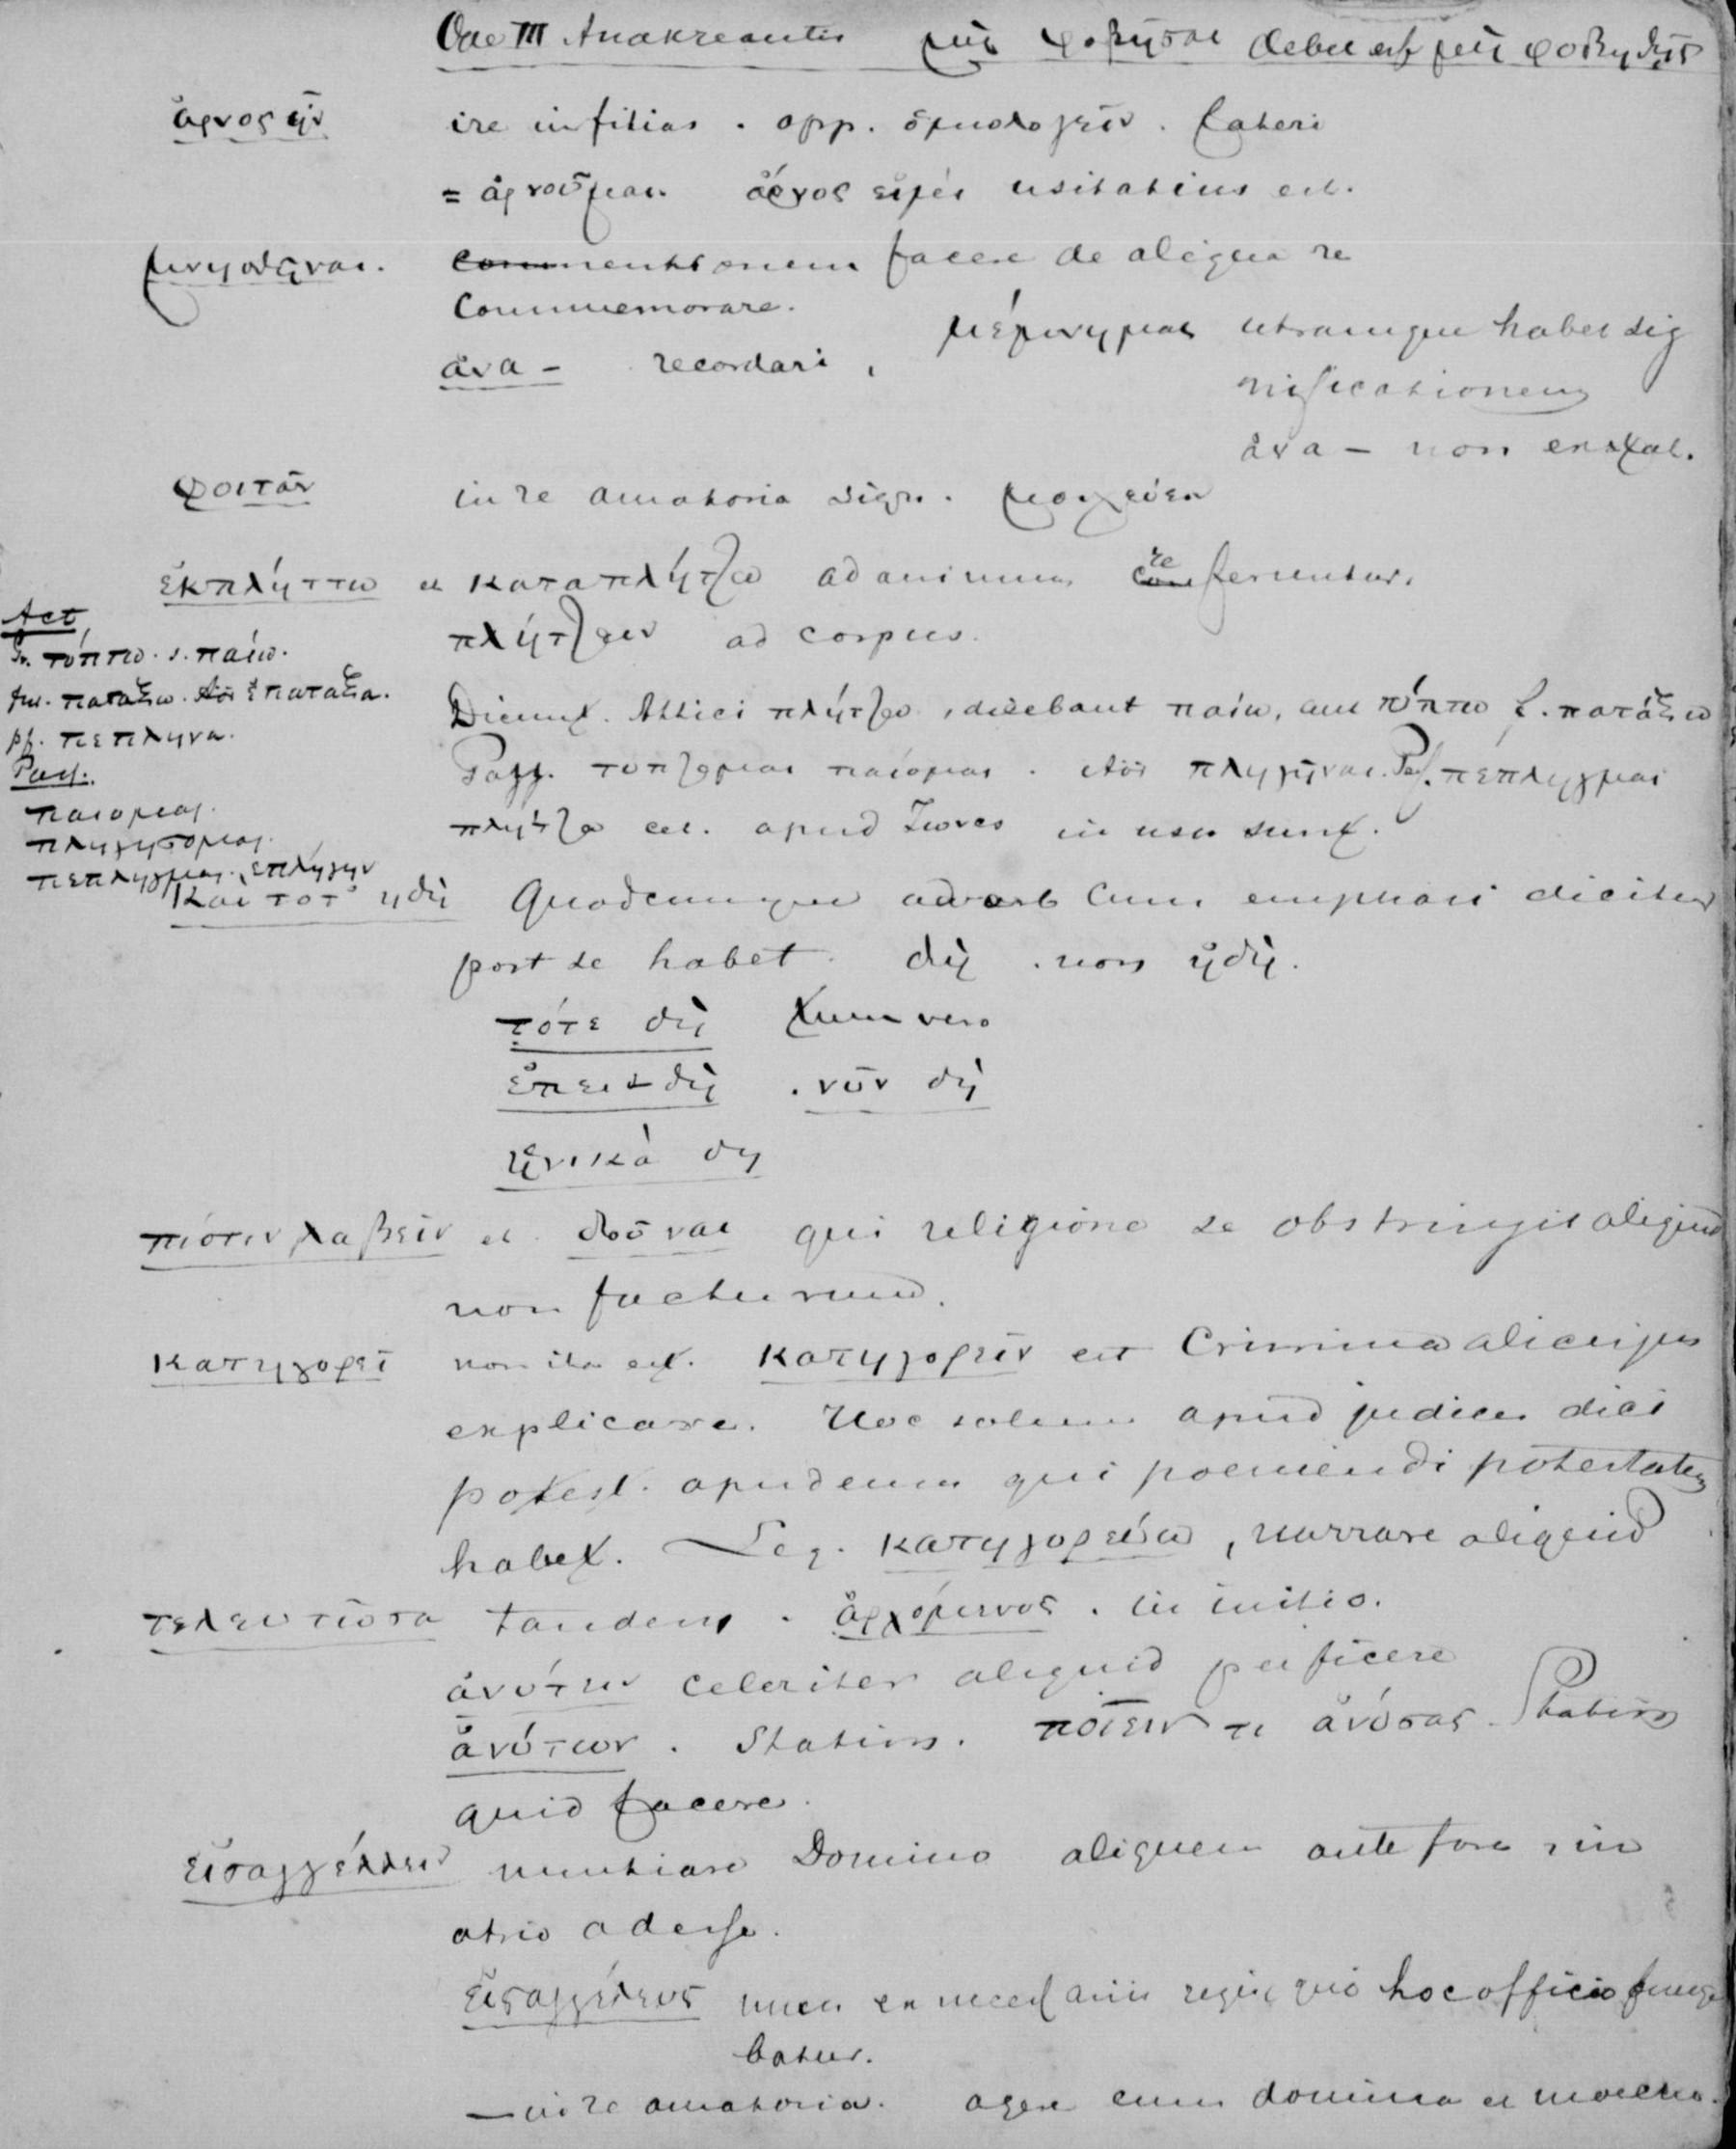 Ode III Anakreontis μὴ φοβῆσαι debet esse μὴ φοβηθῇς
ἄρνος ἦν ire infitias . opp. ὁμολογεῖν . fateri
= ἀρνοῦμαι. ἄρνος εἰμί usitatius est.
μνησθῆναι. commentionem facere de aliqua re
Commemorare.
ἀνα - recordari , μέμνημαι utramque habet sig
nificationem
ἀνα - non exstat.
φοιτᾶν in re amatoria sign. μοιχεύειν
ἐκπλήττω et καταπλήττω ad animum referuntur.
πλήττειν ad corpus.
Act
τύπτω . s. παίω.
fut. παταξω. Aor ἐπαταξα.
pf. πεπληγα.
Pass.
παιομαι.
πληγησομαι.
πεπληγμαι. ἐπλήγην
Attici πλήττω , dicebant παίω, aut τύπτω f. πατάξω
Pass. τυπτομαι παίομαι . Aor πληγῆναι. Pf. πέπληγμαι
πλήττω est. apud Iones in usu sunt.
Καὶ τότ' ηδὴ Quodcumque adverb cum emphasi dicitur
post se habet . δὴ . non ἤδη.
τότε δὴ tum vero
ἐπει + δὴ . νῦν δὴ
ἡνικὰ δη
πίστιν λαβεῖν et . δοῦναι qui religione se obstringit aliquid
non facturum.
κατηγορεῖ non ita est. κατηγορεῖν est Crimina alicujus
explicare. Hoc solum apud judices dici
potest. apud eum qui poeniendi potestatem
habet. Leg. κατηγορεύω , narrare aliquid
τελευτῶσα tandem . ἀρχόμενος . in initio.
ἀνύτειν celeriter aliquid perficere
ἀνύτων . Statim . ποιεῖν τι ἀνύσας . Statim
quid facere.
εἰσαγγέλλειν nuntiare Domino aliquem ante fores , in
atrio adesse.
εἰσαγγελεὺς unus ex necessariis regis, qui hoc officio funge
batur.
— in re amatoria. agere cum domina et moecho.